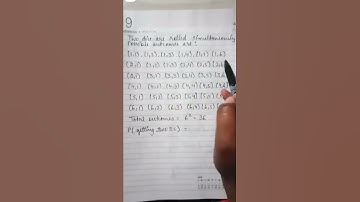 9
Two dice are rolled simultaneously
possible outcomes are:
(1,1) (1,2) (1,3) (1,4) (1,5) (1,6)
(2,1) (2,2) (2,3) (2,4) (2,5) (2,6)
(3,1) (3,2) (3,3) (3,4) (3,5) (3,6)
(4,1) (4,2) (4,3) (4,4) (4,5) (4,6)
(5,1) (5,2) (5,3) (5,4) (5,5)
(6,1) (6,2) (6,3) (6,4) (6,5)
Total outcomes = 6² = 36
P(getting sum =